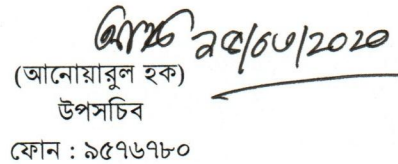 ২৫/০৩/২০২০
(আনোয়ারুল হক)
উপসচিব
ফোন : ৯৫৭৬৭৮০